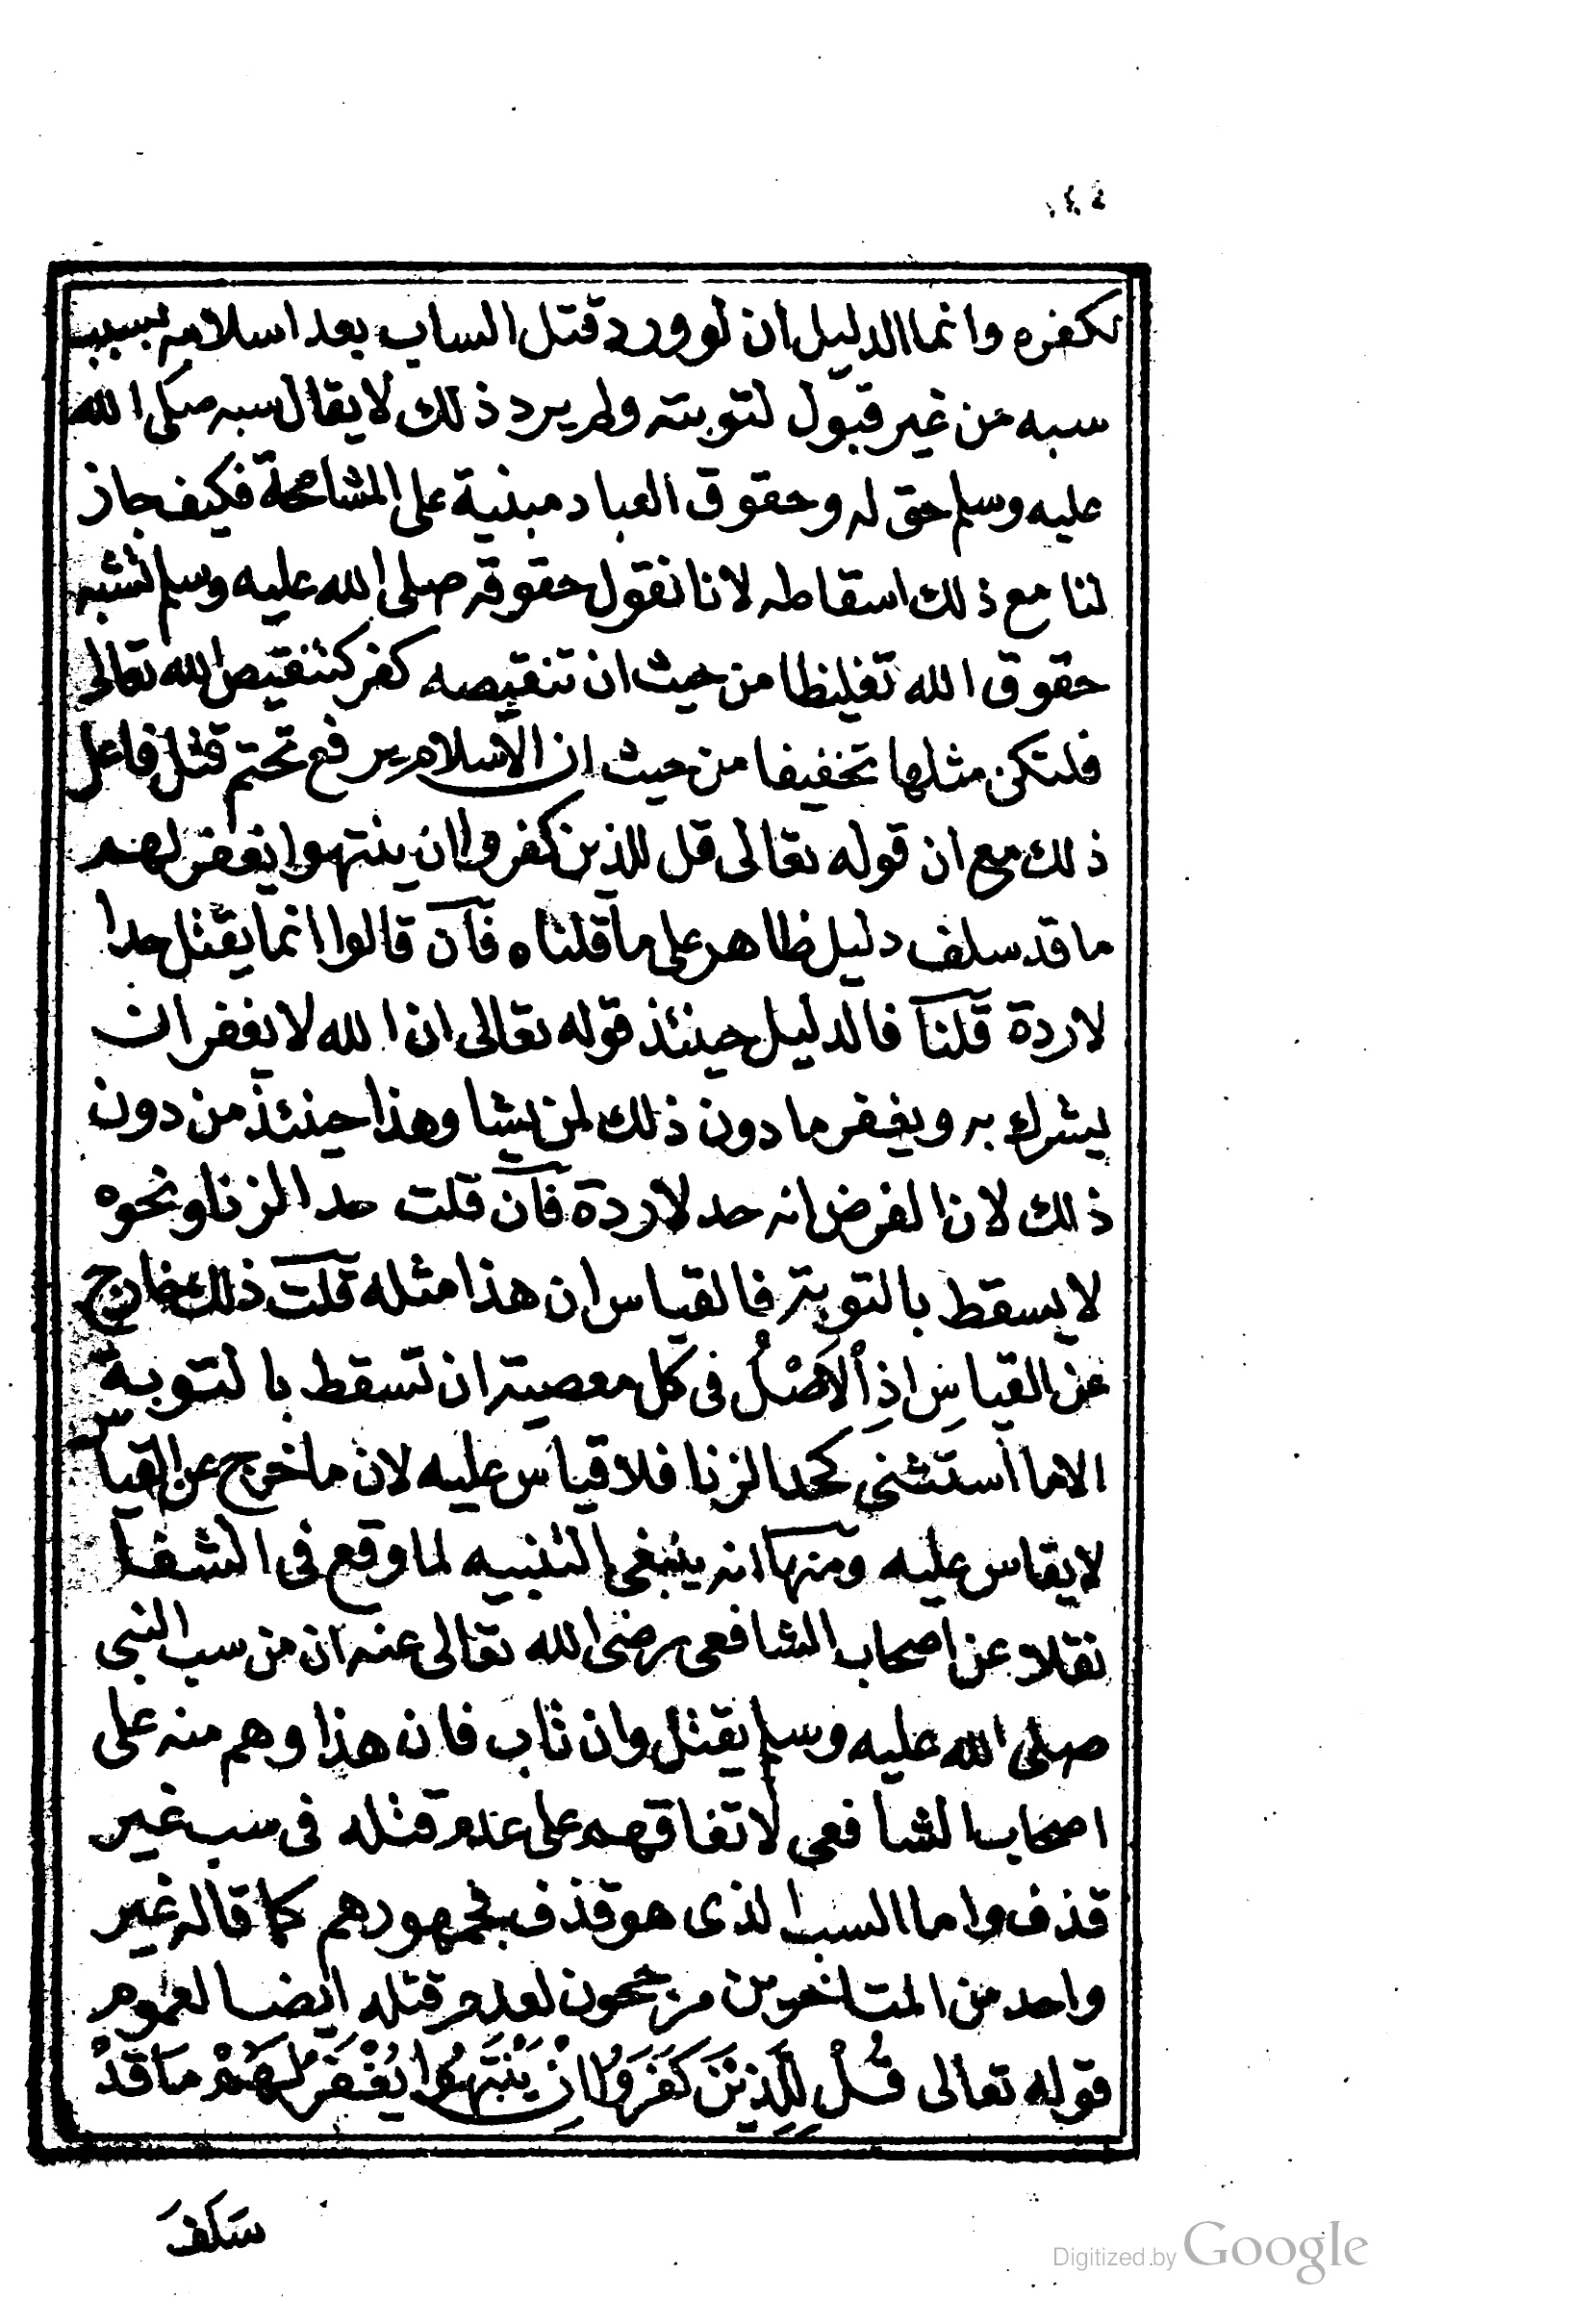 لكفره وانما الدليل ان لو ورد قتل الساب بعد اسلامه بسبب
سبه من غير قبول لتوبته ولم يرد ذلك لا يقال سبه صلى الله
عليه وسلم حق له وحقوق العباد مبنية على المشاححة فكيف جاز
لنا مع ذلك اسقاطه لانا نقول حقوقه صلى الله عليه وسلم تشبه
حقوق الله تغليظا من حيث ان تنقيصه كفر كتنقيص الله تعالى
فلتكن مثلها تخفيفا من حيث ان الاسلام يرفع تحتم قتل فاعل
ذلك مع ان قوله تعالى قل للذين كفروا ان ينتهوا يغفر لهم
ما قد سلف دليل ظاهر على ما قلناه فان قالوا انما يقتل حدا
لا ردة قلنا فالدليل حينئذ قوله تعالى ان الله لا يغفر ان
يشرك به ويغفر ما دون ذلك لمن يشا وهذا حينئذ من دون
ذلك لان الفرض انه حد لا ردة فان قلت حد الزنا ونحوه
لا يسقط بالتوبة فالقياس ان هذا مثله قلت ذلك خارج
عن القياسِ اذِ الاَصْلُ فى كل معصية ان تسقط بالتوبة
الا ما استثنى كحد الزنا فلا قياس عليه لان ما خرج عن القياس
لا يقاس عليه ومنها انه ينبغى التنبيه لما وقع فى الشفا
نقلا عن اصحاب الشافعى رضى الله تعالى عنه ان من سب النبى
صلى الله عليه وسلم يقتل وان تاب فان هذا وهم منه على
اصحاب الشافعى لاتفاقهم على عدم قتله فى سب غير
قذف واما السب الذى هو قذف فجمهورهم كما قاله غير
واحد من المتاخرين مرجحون لعدم قتله ايضا لعموم
قوله تعالى قُلْ لِلَّذِينَ كَفَرُوا اِنْ يَنْتَهُوا يُغْفَرْ لَهُمْ مَا قَدْ
سَلَفَ
Digitized by Google